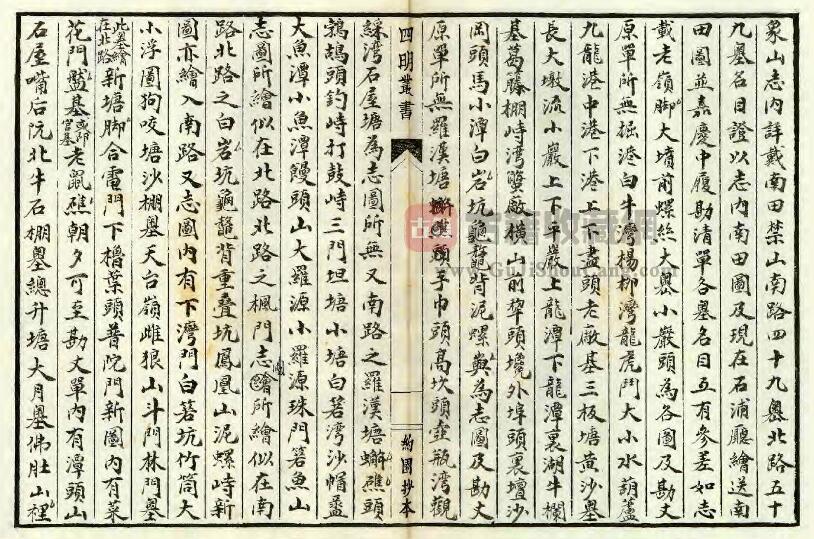 象山志內詳載南田禁山南路四十九嶴北路五十
九嶴名目證以志內南田圖及現在石浦廳繪送南
田圖並嘉慶中履勘清單各嶴名目互有參差如志
載老嶺脚大墳前螺絲大嶴小巖頭為各圖及勘丈
原單所無掘港白牛灣楊柳灣龍虎鬥大小水葫蘆
九龍港中港下港上下盡頭老廠基三板塘黄沙嶴
長大墩流小巖上下平巖上龍潭下龍潭裏湖牛欄
基葛藤棚峙灣蠻廠橫山前犂頭 外埠頭裏壇沙
岡頭馬小潭白岩坑龜鼈背泥螺 為志圖及勘丈
原單所無羅漢塘 礁頭手巾頭高坎頭壺瓶灣觀
四明叢書
約園抄本
綵灣石屋塘為志圖所無又南路之羅漢塘蠏礁頭
鵓鴣頭釣峙打鼓峙三門坦塘小塘白箬灣沙帽盔
大魚潭小魚潭饅頭山大羅源小羅源珠門箬魚山
志圖所繪似在北路北路之楓門志圖所繪似在南
路北路之白岩坑龜鼈背重叠坑鳳凰山泥螺峙新
圖亦繪入南路又志圖內有下灣門白箬坑竹筒大
小浮圖狗咬塘沙棚嶴天台嶺雌狼山斗門林門嶴
此嶴繪在北路新塘脚合電門下櫓葉頭普陀門新圖內有菜
花門盬基 老鼠礁朝夕可至勘丈單內有潭頭山
石屋嘴后阮北牛石棚嶴總升塘大月嶴佛肚山裡
古籍收藏網
www.GuJiShouCang.com